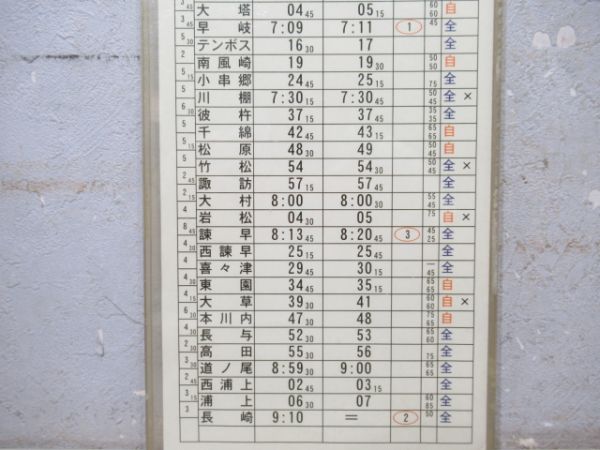 45 大塔 04 45 05 15 60 60 自
3 早岐 7:09 7:11 1 45 全
テンボス 16 30 17 全
南風崎 19 19 30 50 50 自
小串郷 24 45 25 15 75 全
川棚 7:30 15 7:30 45 50 45 全 ×
彼杵 37 15 37 45 35 35 全
千綿 42 45 43 15 65 65 自
松原 48 30 49 50 45 自
竹松 54 54 30 50 45 全 ×
諏訪 57 15 57 45 全
大村 8:00 8:00 30 55 45 全
岩松 04 30 05 75 自 ×
諫早 8:13 45 8:20 45 3 45 25 全
西諫早 25 15 25 45 全
喜々津 29 45 30 15 － 45 全
東園 34 45 35 15 65 65 自
大草 39 30 41 60 60 自 ×
本川内 47 30 48 75 65 自
長与 52 30 53 60 65 全
高田 55 30 56 75 全
道ノ尾 8:59 30 9:00 65 65 全
西浦上 02 45 03 15 全
浦上 06 30 07 60 85 全
3 長崎 9:10 ＝ 2 50 全